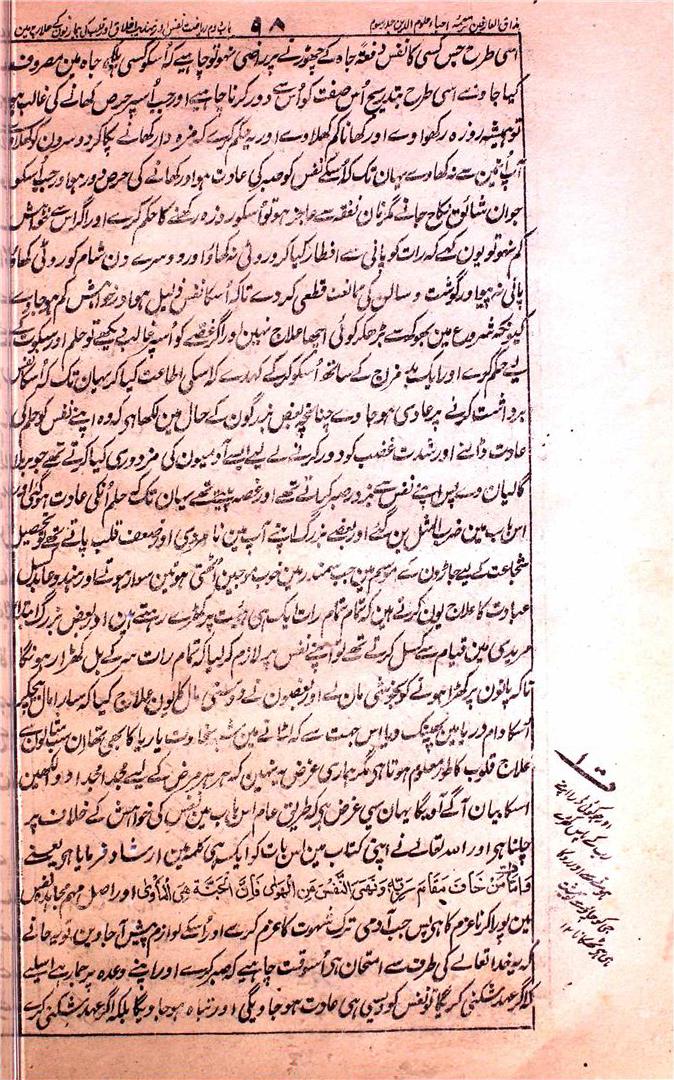 مذاق العارفین ترجمہ احیاء علوم الدین جلد سوم ۹۸ باب دوم ریاضت نفس اور تہذیب اخلاق اور قلب کی بیماریوں کے علاج میں
اسی طرح جس کسی کا نفس دفعۃً جاہ کے چھوڑنے پر راضی نہو تو چاہیے کہ اُسکو کسی ہلکے جاہ مین مصروف
کیا جاوے اسی طرح بتدریج اُس صفت کو اُس سے دور کرنا چاہیے اور جب اُسپر حرص کھانے کی غالب ہو
تو ہمیشہ روزہ رکھواوے اور کھانا کم کھلاوے اور یہ حکم کرے کہ مزہ دار کھانے پکا کر دوسرون کو کھلاوے
آپ اُنمین سے نہ کھاوے یہان تک کہ اُسکے نفس کو صبر کی عادت ہو اور کھانے کی حرص دور ہو اور جب اُسکو
جوان شائق نکاح جانے مگر نان نفقہ سے عاجز ہو تو اُسکو روزہ رکھنے کا حکم کرے اور اگر اس سے خواہش
کم نہو تو یون کہے کہ رات کو پانی سے افطار کیا کرو روٹی نہ کھاؤ اور دوسرے دن شام کو روٹی کھاؤ
پانی نہ پیو اور گوشت و سالن کی ممانعت قطعی کر دے تاکہ اُسکا نفس ذلیل ہو اور خواہش کم ہو جاوے
کیونکہ شروع مین بھوک سے بڑھکر کوئی اچھا علاج نہین اور اگر غصے کو اُسپر غالب دیکھے تو حلم اور سکوت کے
لیے حکم کرے اور ایک بد مزاج کے ساتھ اُسکو کر کے کہدے کہ اسکی اطاعت کیا کر یہان تک کہ اُسکا نفس
برداشت کرنے پر عادی ہو جاوے چنانچہ بعض بزرگون کے حال مین لکھا ہی کہ وہ اپنے نفس کو حلم کی
عادت ڈالنے اور شدت غضب کو دور کرنے کے لیے ایسے آدمیون کی مزدوری کیا کرتے تھے جو برملا
گالیان دے پس اپنے نفس سے بزور صبر کراتے تھے اور غصہ پیتے تھے یہان تک کہ حلم اُنکی عادت ہو گئی اور
اس باب مین ضرب المثل بن گئے اور بعضے بزرگ اپنے آپ مین نامردی اور ضعف قلب پاتے تھے تو تحصیل
شجاعت کے لیے جاڑون کے موسم مین جب سمندر مین خوب موجین اُٹھتی ہوتین سوار ہوتے اور ہندو عابد کسل
عبادت کا علاج یون کرتے ہین کہ تمام تمام رات ایک ہی ہیئت پر کھڑے رہتے ہین اور بعض بزرگ ابتداے
مریدی مین قیام سے کسل کرتے تھے تو اپنے نفس پر لازم کر لیا کہ تمام رات سر کے بل کھڑا رہونگا
تاکہ پانون پر کھڑا ہونے کو بخوشی مان لے اور بعضون نے دوستی مال کا یون علاج کیا کہ سارا مال بیچکر
اُسکا دام دریا مین پھینک دیا اس جہت سے کہ لٹانے مین شبہ سخاوت یا ریا کا بھی تھا ان سب مثالون سے
علاج قلوب کا طور معلوم ہوتا ہی مگر ہماری غرض یہ نہین کہ ہر ہر مرض کے لیے جدا جدا دوا لکھین
اسکا بیان آگے آویگا یہان سے یہی غرض ہی کہ طریق عام اس باب مین نفس کی خواہش کے خلاف پر
چلنا ہی اور اللہ تعالے نے اپنی کتاب مین اس بات کو ایک ہی کلمہ مین ارشاد فرمایا ہو یعنے
وَاَمَّا مَنْ خَافَ مَقَامَ رَبِّہٖ وَنَہَی النَّفْسَ عَنِ الْہَوٰی فَاِنَّ الْجَنَّۃَ ھِیَ الْمَأْوٰی اور اصل مہم مجاہدہ نفس
مین پورا کرنا عزم کا ہی پس جب آدمی ترک شہوت کا عزم کرے اور اُسکے لوازم پیش آ جاوین تو یہ جانے
کہ یہ خدا تعالے کی طرف سے امتحان ہی اُسوقت چاہیے کہ صبر کرے اور اپنے وعدہ پر جما رہے اسلیے
کہ اگر عہد شکنی کریگا تو نفس کو ویسی ہی عادت ہو جاویگی اور تباہ ہو جاویگا بلکہ اگر عہد شکنی کرے